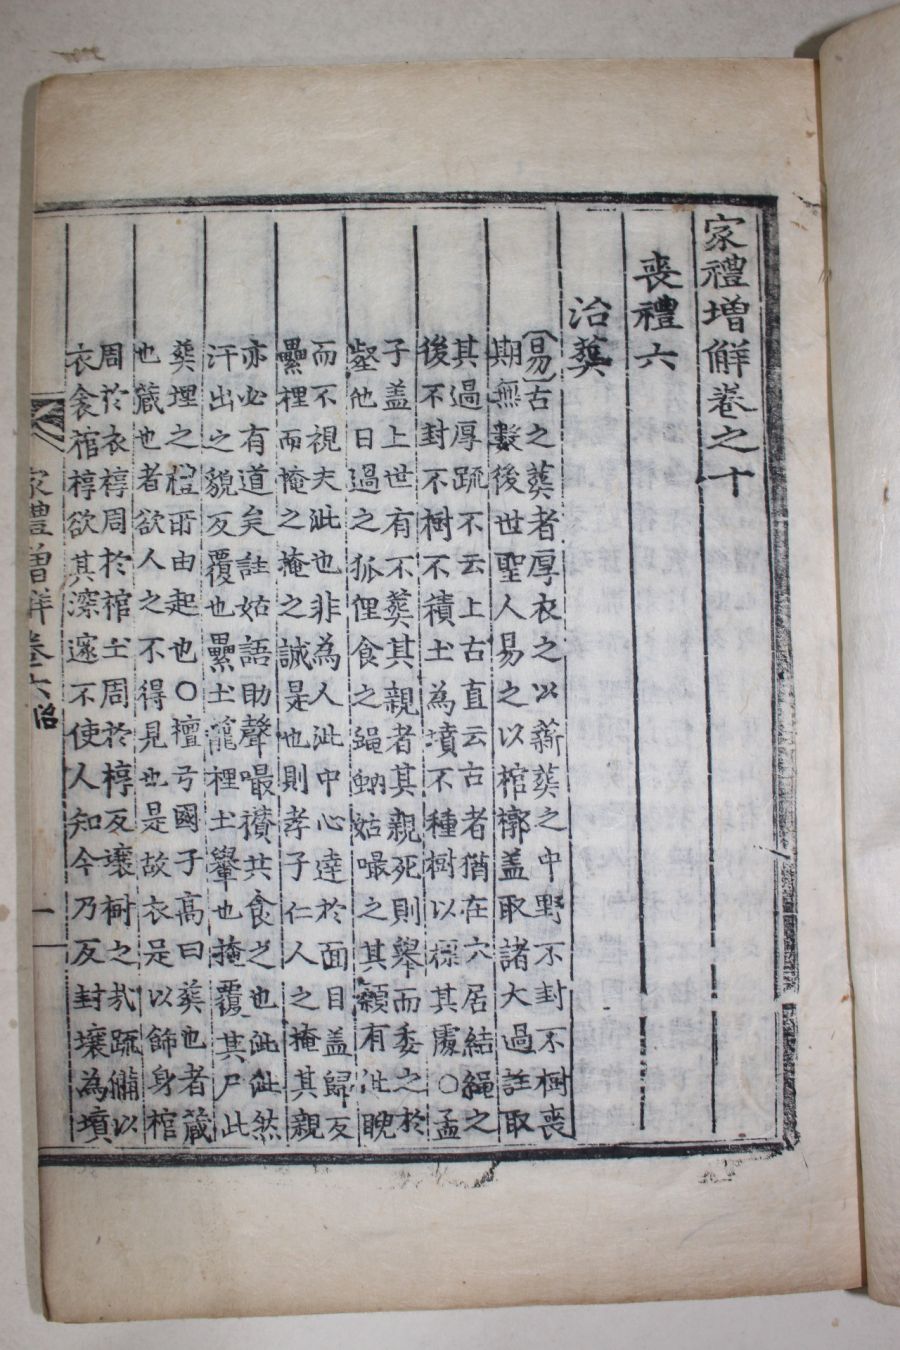 家禮增解卷之十
喪禮六
治葬
易古之葬者厚衣之以薪葬之中野不封不樹喪
期無數後世聖人易之以棺槨盖取諸大過註取
其過厚䟽不云上古直云古者猶在穴居結繩之
後不封不樹不積土為墳不種樹以標其處○孟
子盖上世有不葬其親者其親死則舉而委之於
壑他日過之狐狸食之蝇蚋姑嘬之其顙有泚睨
而不視夫泚也非為人泚中心達於面目盖歸反
虆梩而掩之掩之誠是也則孝子仁人之掩其親
亦必有道矣註姑語助聲嘬攅共食之也泚泚然
汗出之貌反覆也虆土籠梩土轝也掩覆其尸此
葬埋之禮所由起也○檀弓國子高曰葬也者蔵
也蔵也者欲人之不得見也是故衣足以飾身棺
周於衣椁周於棺土周於椁反壤樹之㦲䟽備以
衣衾棺椁欲其深邃不使人知今乃反封壤為墳
家禮增解卷六治 一